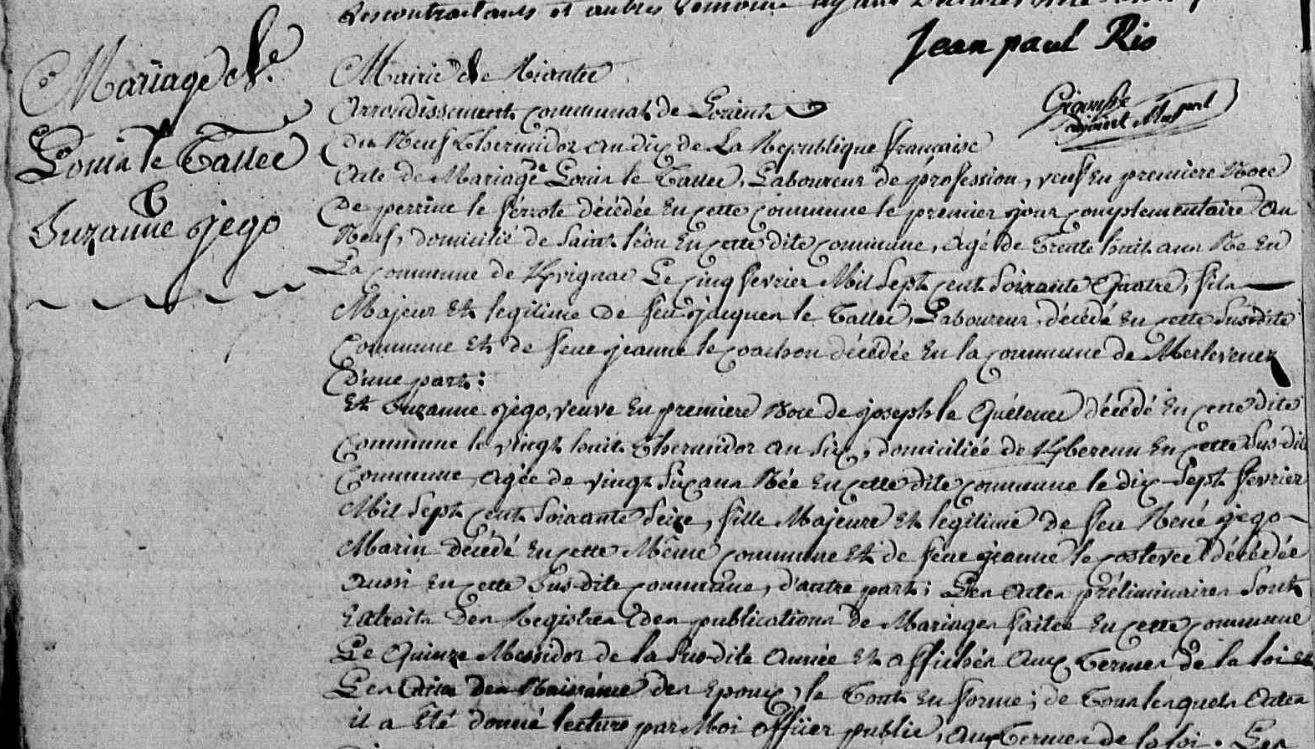 contractants et autres témoins ayant
Jean paul Rio
Mariage de
Louis le Tallec
&
Suzanne jego
Mairie de Riantec
adjoint
Arrondissement communal de Lorient
Du Neuf Thermidor an dix de La Republique française
Acte de Mariage de Louis le Tallec, Laboureur de profession, veuf en première Noce
De perrine le ferrote décédée En cette commune le premier jour complementaire an
Neuf, domicilié de Saint léon En cette dite commune, agé de Trente huit ans Né En
La commune de Kvignac Le cinq fevrier Mil Sept cent Soixante Quatre, fils
Majeur Et legitime de feu jacques le Tallec, Laboureur, décédé En cette Susdite
Commune Et de feue jeanne le coachon décédée En la commune de Merlevenez
D'une part :
Et Suzanne jego, veuve En premiere Noce de joseph le Quérence décédé En cette dite
Commune le vingt huit Thermidor an Six, domiciliée de Kberenn En cette Sus dite
Commune, agée de vingt Six ans Née En cette dite commune le dix Sept fevrier
Mil Sept cent Soixante Seize, fille Majeure Et legitime de feu René jego
Marin décédé En cette Même commune Et de feue jeanne le décédée
aussi En cette Sus-dite commune, d'autre part ; Les Actes préliminaires Sont
Extraits des Registres des publications de Mariages faites En cette commune
Le Quinze Messidor de la Sus-dite année Et affichés aux Termes de la loi et
Les Actes des Naissance des Epoux, le Tout En forme ; de Tous lesquels Actes
il a Eté donné lecture par Moi officier public, aux Termes de la loi : Les